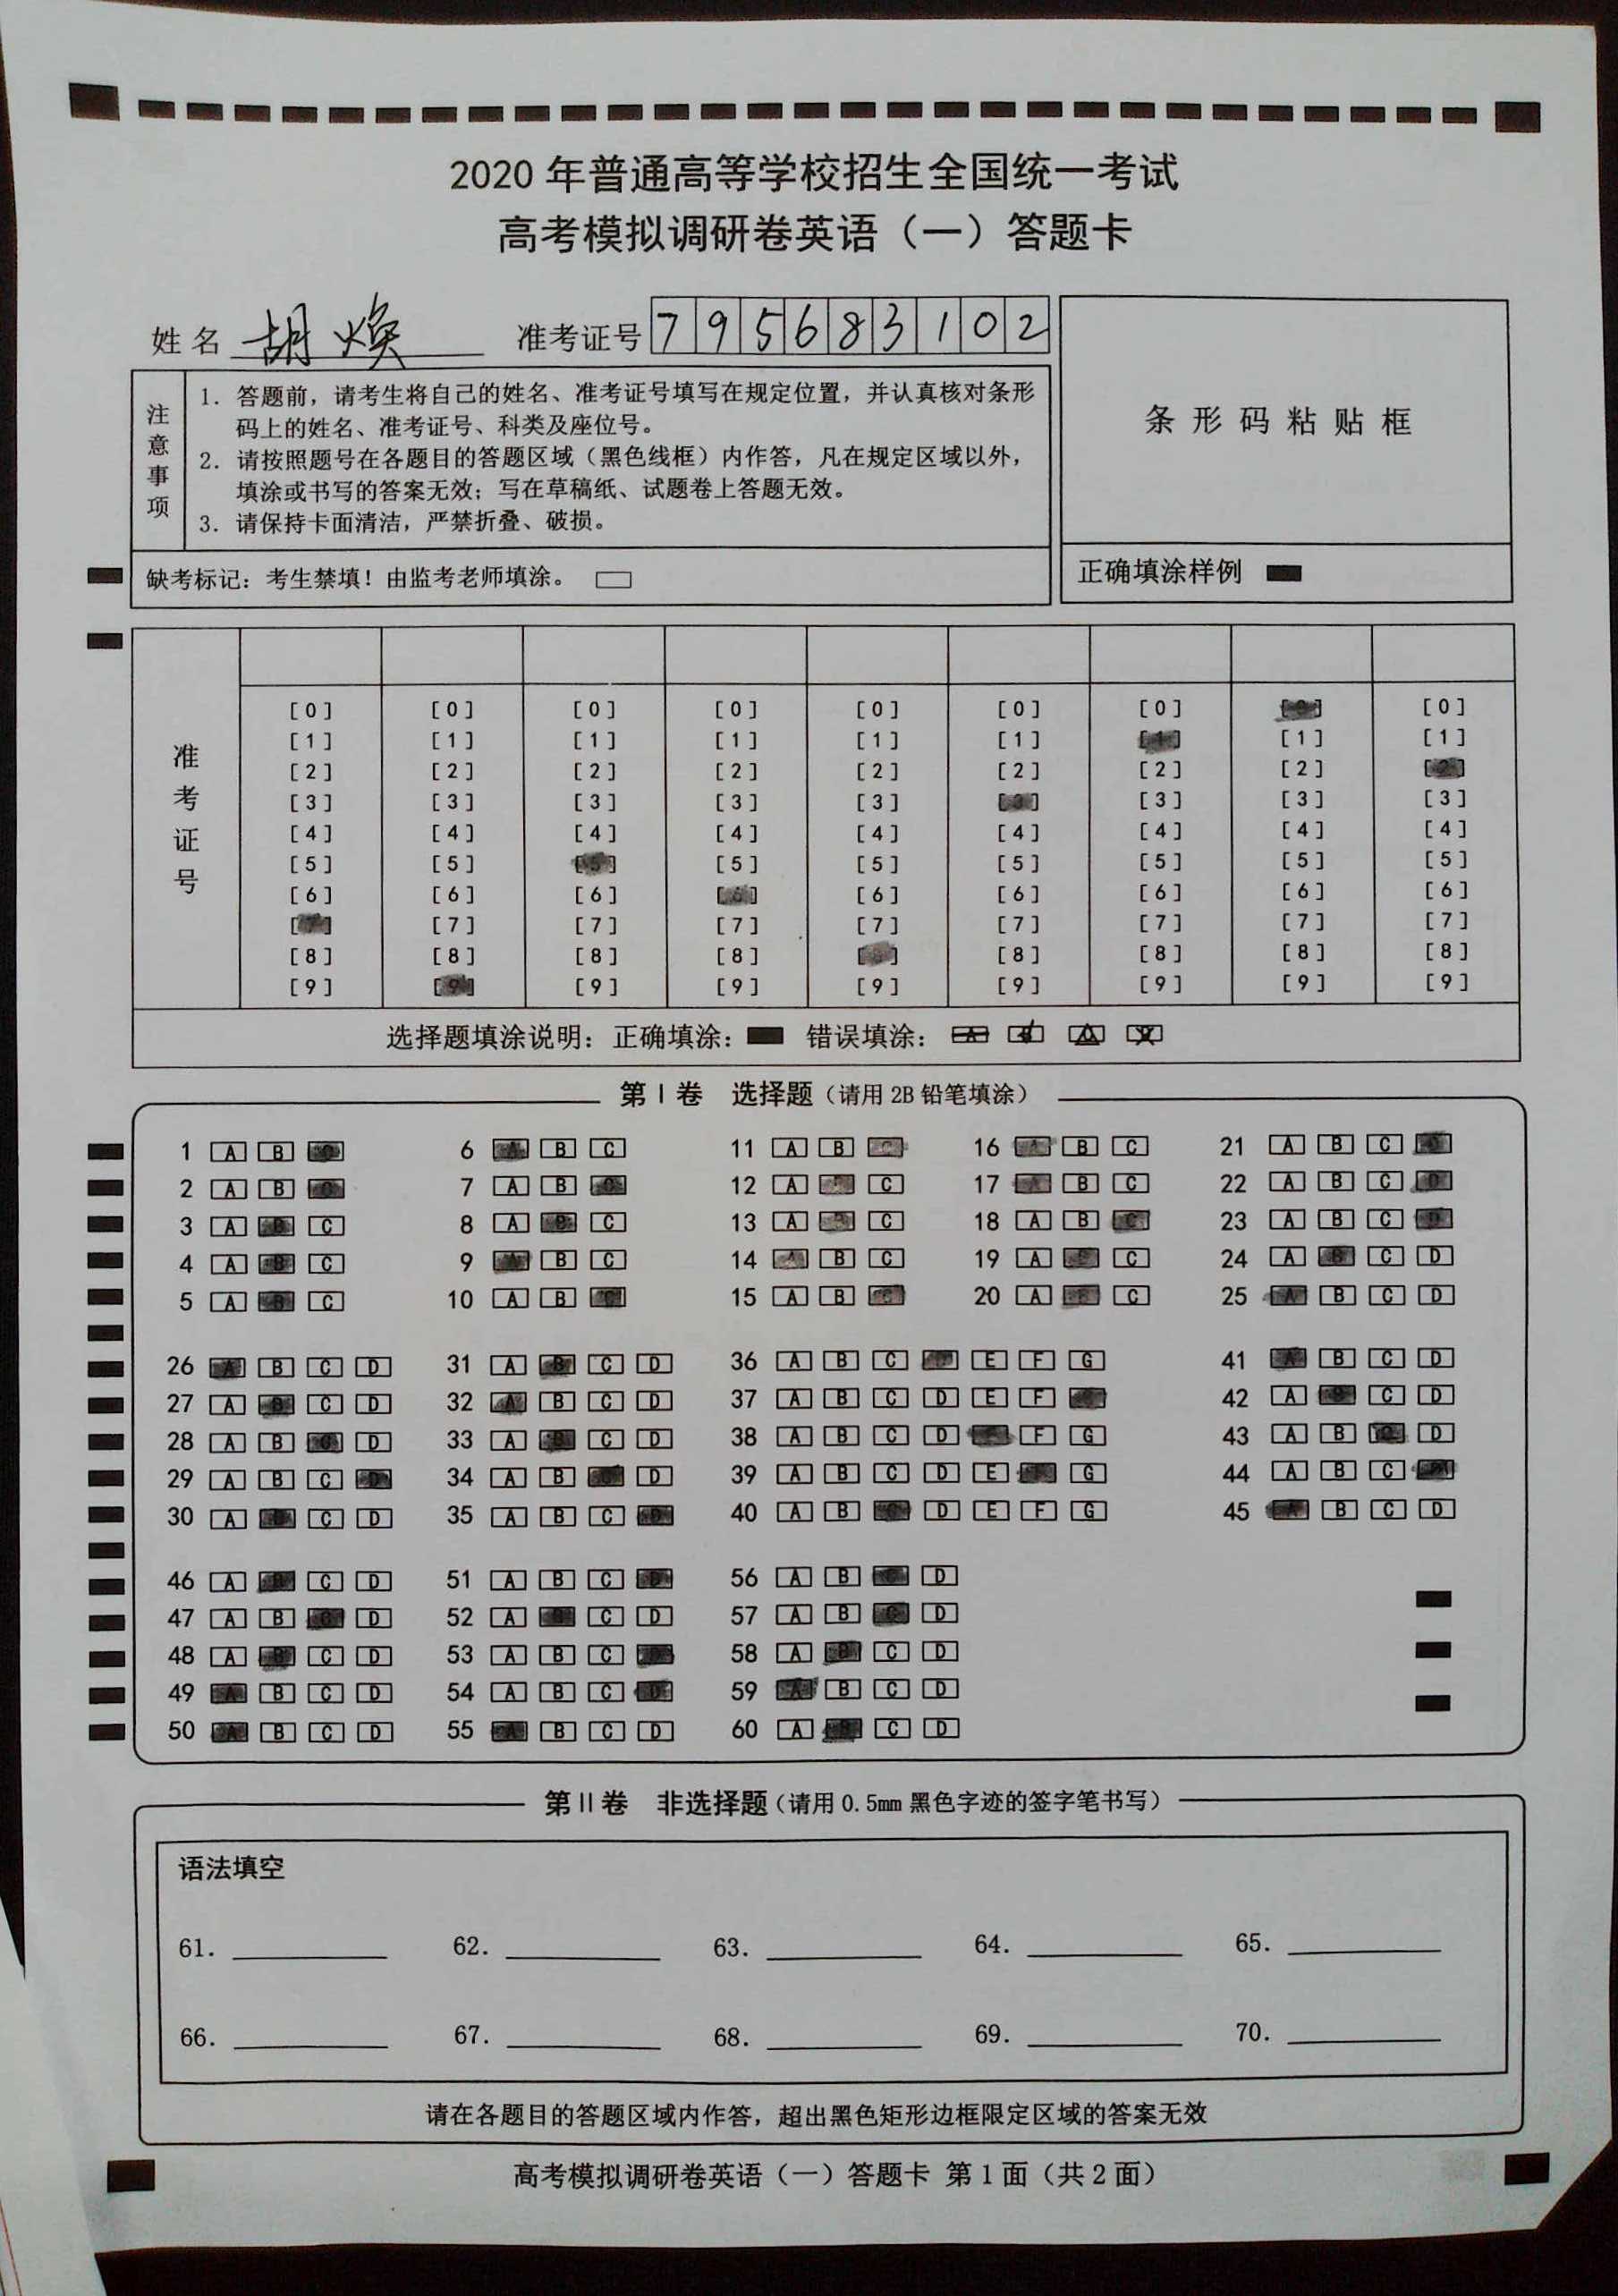 2020 年普通高等学校招生全国统一考试
高考模拟调研卷英语（一）答题卡
姓名 胡焕 准考证号 7 9 5 6 8 3 1 0 2
注意事项
1. 答题前，请考生将自己的姓名、准考证号填写在规定位置，并认真核对条形
码上的姓名、准考证号、科类及座位号。
2. 请按照题号在各题目的答题区域（黑色线框）内作答，凡在规定区域以外，
填涂或书写的答案无效；写在草稿纸、试题卷上答题无效。
3. 请保持卡面清洁，严禁折叠、破损。
条形码粘贴框
缺考标记：考生禁填！由监考老师填涂。
正确填涂样例
准考证号
[0] [0] [0] [0] [0] [0] [0] [0] [0]
[1] [1] [1] [1] [1] [1] [1] [1] [1]
[2] [2] [2] [2] [2] [2] [2] [2] [2]
[3] [3] [3] [3] [3] [3] [3] [3] [3]
[4] [4] [4] [4] [4] [4] [4] [4] [4]
[5] [5] [5] [5] [5] [5] [5] [5] [5]
[6] [6] [6] [6] [6] [6] [6] [6] [6]
[7] [7] [7] [7] [7] [7] [7] [7] [7]
[8] [8] [8] [8] [8] [8] [8] [8] [8]
[9] [9] [9] [9] [9] [9] [9] [9] [9]
选择题填涂说明：正确填涂： 错误填涂：
第Ⅰ卷 选择题（请用 2B 铅笔填涂）
1 A B C 6 A B C 11 A B C 16 A B C 21 A B C D
2 A B C 7 A B C 12 A B C 17 A B C 22 A B C D
3 A B C 8 A B C 13 A B C 18 A B C 23 A B C D
4 A B C 9 A B C 14 A B C 19 A B C 24 A B C D
5 A B C 10 A B C 15 A B C 20 A B C 25 A B C D
26 A B C D 31 A B C D 36 A B C D E F G 41 A B C D
27 A B C D 32 A B C D 37 A B C D E F G 42 A B C D
28 A B C D 33 A B C D 38 A B C D E F G 43 A B C D
29 A B C D 34 A B C D 39 A B C D E F G 44 A B C D
30 A B C D 35 A B C D 40 A B C D E F G 45 A B C D
46 A B C D 51 A B C D 56 A B C D
47 A B C D 52 A B C D 57 A B C D
48 A B C D 53 A B C D 58 A B C D
49 A B C D 54 A B C D 59 A B C D
50 A B C D 55 A B C D 60 A B C D
第Ⅱ卷 非选择题（请用 0.5mm 黑色字迹的签字笔书写）
语法填空
61. 62. 63. 64. 65.
66. 67. 68. 69. 70.
请在各题目的答题区域内作答，超出黑色矩形边框限定区域的答案无效
高考模拟调研卷英语（一）答题卡 第 1 面（共 2 面）